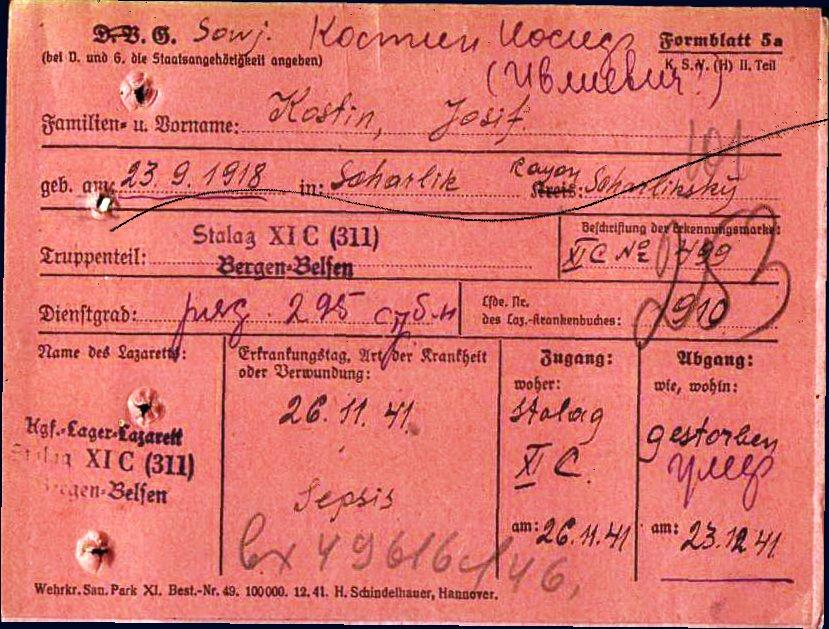 D.V.G. Sowj. Костин Иосиф
(bei D. und G. die Staatsangehörigkeit angeben)
Formblatt 5a
K. S. V. (H) II. Teil
(Ивлиевич?)
Familien- u. Vorname: Kostin, Josif.
101
geb. am: 23.9.1918 in: Scharlik Rayon Kreis: Scharliksky
Truppenteil: Stalag XI C (311)
Bergen-Belsen
Beschriftung der Erkennungsmarke:
XI C № 499
Dienstgrad: 295
Lfde. Nr.
des Laz.-Krankenbuches: 910
Name des Lazaretts:
Kgf.-Lager-Lazarett
Stalag XI C (311)
Bergen-Belsen
Erkrankungstag, Art der Krankheit
oder Verwundung:
26.11.41
Sepsis
Вх 49616с/46,
Zugang:
woher:
Stalag
XI C.
am: 26.11.41
Abgang:
wie, wohin:
gestorben
умер
am: 23.12.41
Wehrkr. San. Park XI. Best.-Nr. 49. 100000. 12. 41. H. Schindelhauer, Hannover.